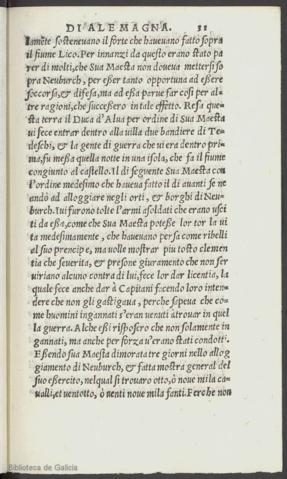 DI ALEMAGNA. 31
lamẽte sosteneuano il forte che haueuano fatto sopra
il fiume Lico. Per innanzi da questo erano stato pa
rer di molti, che Sua Maesta non doueua mettersi so
pra Neuburch, per eßer tanto opportuna ad eßere
soccorsa, & difesa, ma ad eßa parue far cosi per al-
tre ragioni, che successero in tale effetto. Resa que
sta terra il Duca d'Alua per ordine di Sua Maesta
ui fece entrar dentro alla uilla due bandiere di Te-
deschi, & la gente di guerra che ui era dentro pri-
ma, fu meßa quella notte in una isola, che fa il fiume
congiunto al castello. Il dì seguente Sua Maesta con
l'ordine medesimo che haueua fatto il dì auanti se ne
andò ad alloggiare negli orti, & borghi di Neu-
burch. Iui furono tolte l'armi a soldati che erano usci
ti da eßa, come che Sua Maesta poteße lor tor la ui
ta medesimamente, che haueuano persa come ribelli
al suo prencipe, ma uolle mostrar piu tosto clemen
tia che seuerita, & presone giuramento che non ser
uiriano alcuno contra di lui, fece lor dar licentia, la
quale fece anche dar à Capitani facendo loro inten-
dere che non gli gastigaua, perche sapeua che co-
me huomini ingannati s'eran uenuti à trouar in quel
la guerra. Al che eßi risposero che non solamente in
gannati, ma anche per forza u'erano stati condotti.
Eßendo sua Maesta dimorata tre giorni nello allog
giamento di Neuburch, & fatta mostra general del
suo eßercito, nel qual si trouaro otto, ò noue mila ca-
ualli, et uentotto, ò uenti noue mila fanti. Perche non
Biblioteca de Galicia